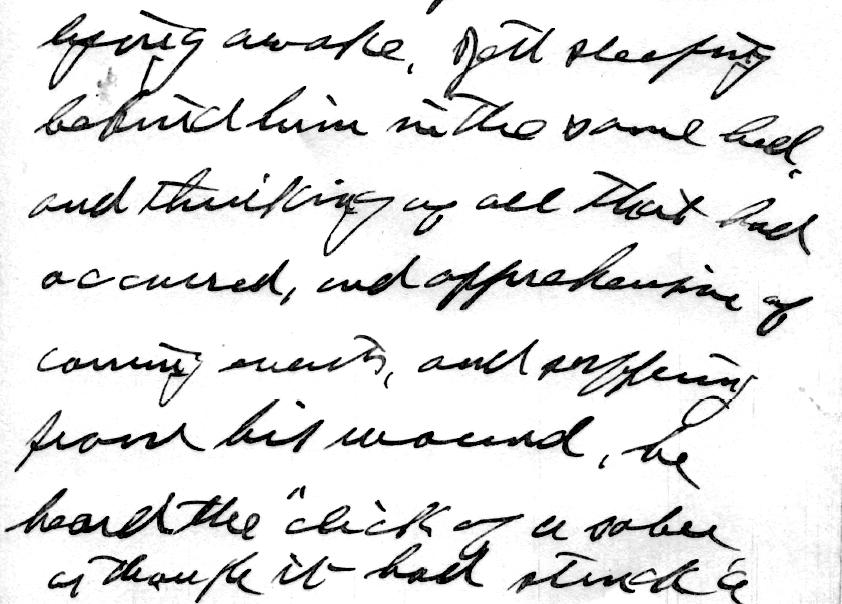 lying awake, Jett sleeping
behind him in the same bed,
and thinking of all that had
occurred, and apprehensive of
coming events, and suffering
from his wound, he
heard the "click of a saber
as though it had struck a